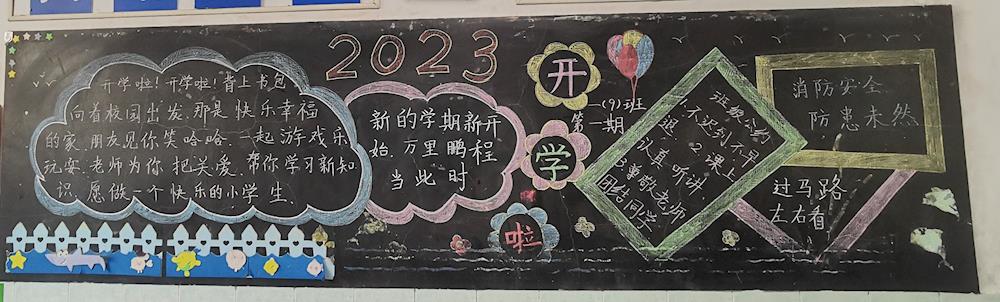 开学啦！开学啦！背上书包
向着校园出发，那是快乐幸福
的家，朋友见你笑哈哈，一起游戏乐
玩耍，老师为你把关爱，帮你学习新知
识，愿做一个快乐的小学生，
2023
新的学期新开
始，万里鹏程
当此时
开
学
啦
一(9)班
第一期
班级公约
1.不迟到不早
退 2.课上
认真听讲，
3.尊敬老师
团结同学
消防安全
防患未然
过马路
左右看